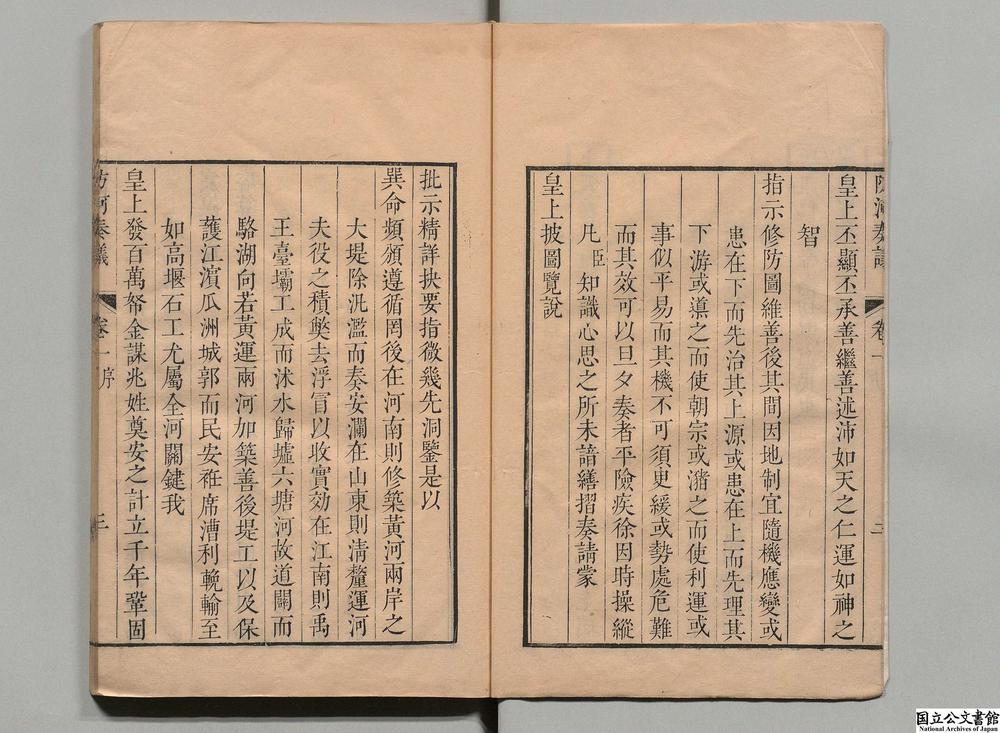 防河奏議
卷一
三
皇上丕顯丕承善繼善述沛如天之仁運如神之
智
指示修防圖維善後其間因地制宜隨機應變或
患在下而先治其上源或患在上而先理其
下游或導之而使朝宗或潴之而使利運或
事似平易而其機不可須更緩或勢處危難
而其效可以旦夕奏者平險疾徐因時操縱
凡臣知識心思之所未諳繕摺奏請蒙
皇上披圖覽說
批示精詳抉要指微幾先洞鑒是以
巽命頻頒遵循罔後在河南則修築黃河兩岸之
大堤除汎濫而奏安瀾在山東則清釐運河
夫役之積獘去浮冐以收實効在江南則禹
王臺壩工成而沭水歸墟六塘河故道闢而
駱湖向若黃運兩河加築善後堤工以及保
護江濵瓜洲城郭而民安袵席漕利輓輸至
如高堰石工尤屬全河關鍵我
皇上發百萬帑金謀兆姓奠安之計立千年鞏固
防河奏議
卷一序
三
国立公文書館
National Archives of Japan